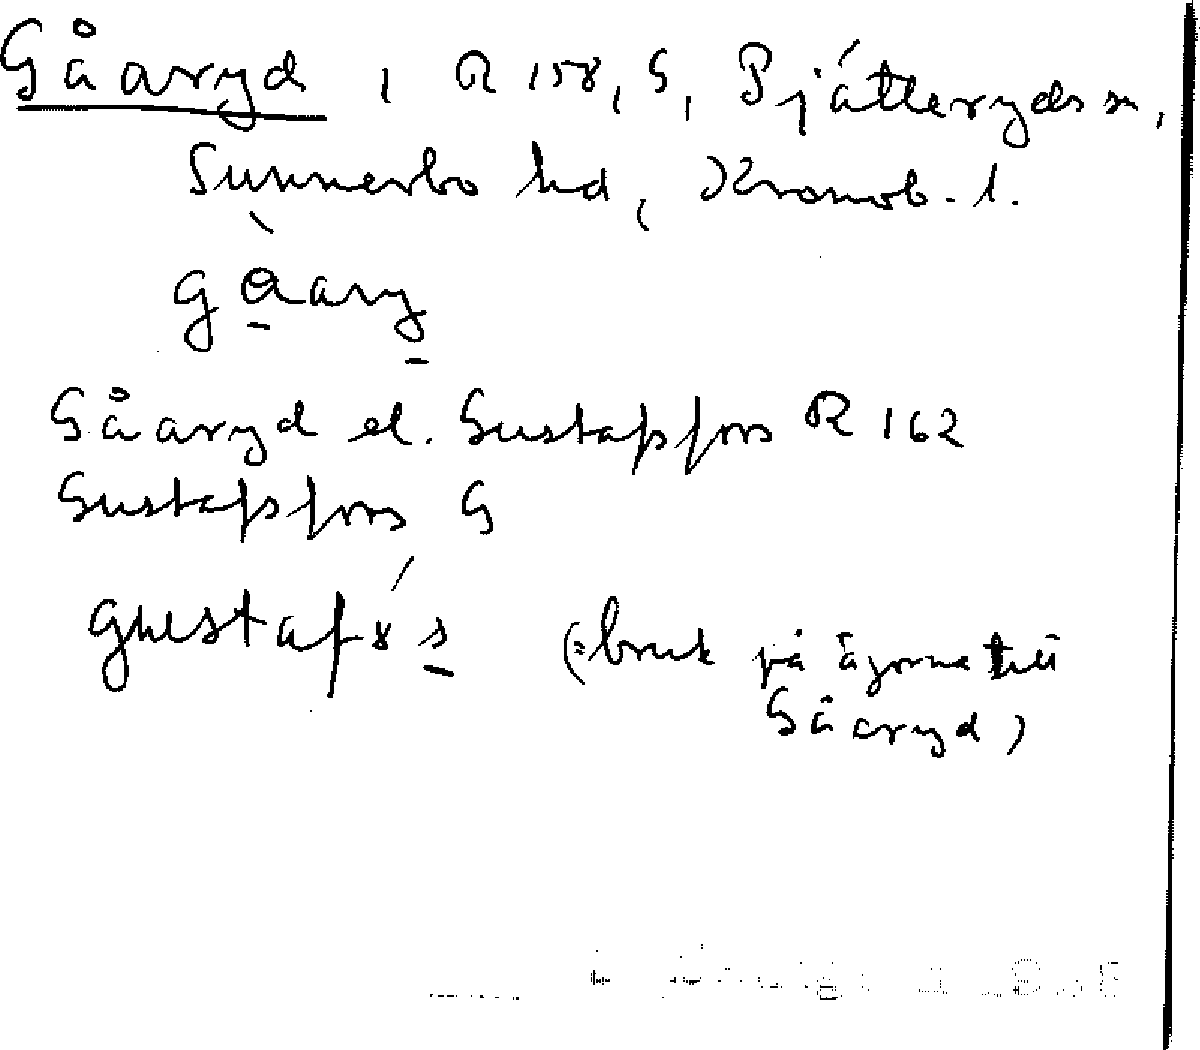 Gåaryd, R 158, G, Pjätteryds sn,
Sunnerbo hd, Kronob. l.
gåary
Gåaryd el. Gustafsfors R 162
Gustafsfors G
gustafs (= bruk på ägorna till
Gåaryd)